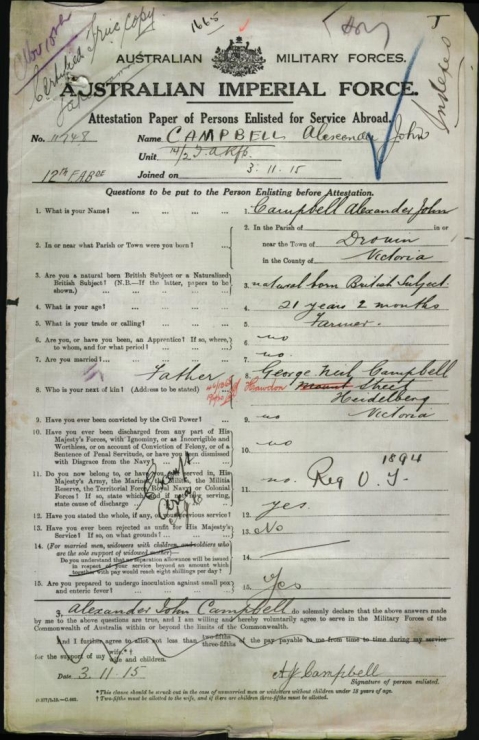 Nov 15th
Certified True Copy
1665
Indexed
AUSTRALIAN MILITARY FORCES.
AUSTRALIAN IMPERIAL FORCE.
Attestation Paper of Persons Enlisted for Service Abroad.
No. Name CAMPBELL Alexander John
Unit
12th FABde Joined on 3.11.15
Questions to be put to the Person Enlisting before Attestation.
1. What is your Name? ... ... ... 1. Campbell Alexander John
2. In or near what Parish or Town were you born? ... 2. In the Parish of in or
near the Town of Drouin
in the County of Victoria
3. Are you a natural born British Subject or a Naturalized
British Subject? (N.B.—If the latter, papers to be
shown.) 3. natural born British Subject
4. What is your age? ... ... ... 4. 21 years 2 months
5. What is your trade or calling? ... ... 5. Farmer.
6. Are you, or have you been, an Apprentice? If so, where,
to whom, and for what period? 6. no
7. Are you married? ... ... ... 7. no.
8. Who is your next of kin? (Address to be stated) Father 8. George Neil Campbell
Hawdon Mount Street
Heidelberg
Victoria
9. Have you ever been convicted by the Civil Power? ... 9. no
10. Have you ever been discharged from any part of His
Majesty's Forces, with Ignominy, or as Incorrigible and
Worthless, or on account of Conviction of Felony, or of a
Sentence of Penal Servitude, or have you been dismissed
with Disgrace from the Navy? 10. no
11. Do you now belong to, or have you ever served in, His
Majesty's Army, the Marines, the Militia, the Militia
Reserve, the Territorial Force, Royal Navy or Colonial
Forces? If so, state which, and if not now serving,
state cause of discharge 11. no. Reg 1894
Exempt Area
12. Have you stated the whole, if any, of your previous service? 12. yes
13. Have you ever been rejected as unfit for His Majesty's
Service? If so, on what grounds? 13. No
14. (For married men, widowers with children and soldiers who
are the sole support of widowed mother)—
Do you understand that no separation allowance will be issued
in respect of your service beyond an amount which
together with pay would reach eight shillings per day? 14.
15. Are you prepared to undergo inoculation against small pox
and enteric fever? 15. Yes
I, Alexander John Campbell do solemnly declare that the above answers made
by me to the above questions are true, and I am willing and hereby voluntarily agree to serve in the Military Forces of the
Commonwealth of Australia within or beyond the limits of the Commonwealth.
And I further agree to allot not less than two-fifths three-fifths of the pay payable to me from time to time during my service
for the support of my wife.*†
wife and children.
Date 3.11.15 AJ Campbell
Signature of person enlisted.
*This clause should be struck out in the case of unmarried men or widowers without children under 18 years of age.
†Two-fifths must be allotted to the wife, and if there are children three-fifths must be allotted.